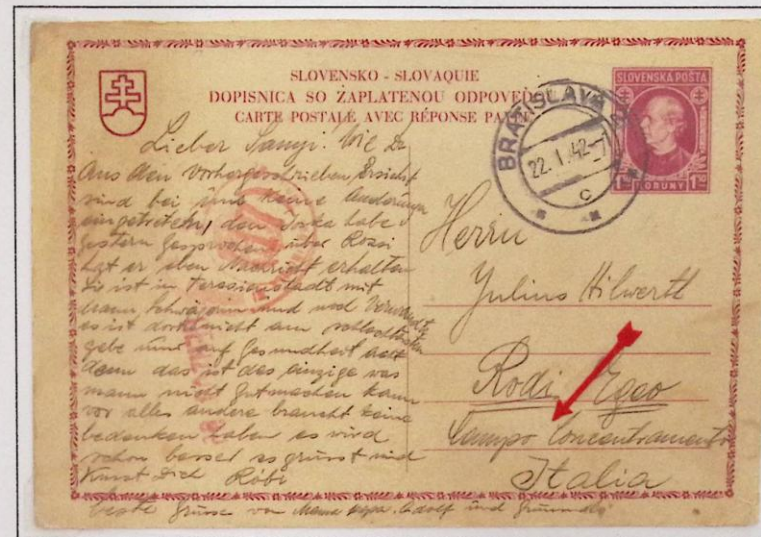 SLOVENSKO - SLOVAQUIE
DOPISNICA SO ZAPLATENOU ODPOVEĎ
CARTE POSTALE AVEC RÉPONSE PAYÉE
SLOVENSKÁ POŠTA
KORUNY
BRATISLAVA
22. I. 42
C
Lieber Sanyi! Wie Du
Aus den vorhergeschrieben, Ersicht
sind bei uns keine Änderungen
eingetreten, den habe
gestern gesprochen über Rosi
hat er eben Nachricht erhalten
Sie ist in Terssienstadt mit
mann, Schwägerin und
es ist dort nicht am schlechtesten
gebe nur auf Gesundheit acht
denn das ist das einzige was
mann nicht gutmachen kann
vor alles andere braucht keine
bedenken haben es wird
schon besser es grüsst und
Küsst Dich Robi
beste Grüsse von Mama Adolf und
Herrn
Julius Hilwertl
Rodi Egeo
Campo Concentramento
Italia